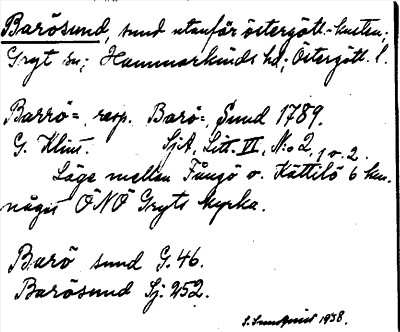 Barösund, sund utanför östergötl.-kusten;
Gryt sn; Hammarkinds hd; Östergötl. l.
Barrö=, resp. Barö=, Sund 1789.
G. Klint. SjA, Litt. VI, N:o 2, 1 o. 2.
Läge mellan Fångö o. Kättilö 6 km.
någis ÖNÖ Gryts kyrka.
Barö sund G. 46.
Barösund Sj. 252.
S. Sundqvist 1938.